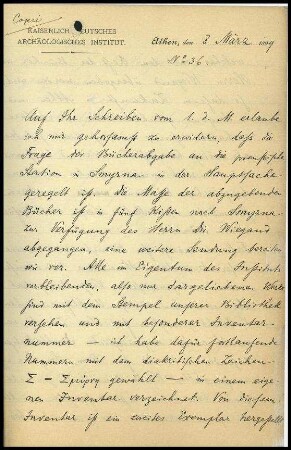 Copie
KAISERLICH DEUTSCHES
ARCHÄOLOGISCHES INSTITUT.
Athen, den 8 März 1909
No 236
Auf Ihr Schreiben vom 1. d. M. erlaube
ich mir gehorsamst zu erwidern, dass die
Frage der Bücherabgabe an die preussische
Station in Smyrna in der Hauptsache
geregelt ist. Die Masse der abzugebenden
Bücher ist in fünf Kisten nach Smyrna
zur Verfügung des Herrn Dr. Wiegand
abgegangen, eine weitere Sendung bereiten
wir vor. Alle im Eigentum des Instituts
verbleibenden, also nur dargeliehenen Werke
sind mit dem Stempel unserer Bibliothek
versehen und mit besonderer Inventar-
nummer — ich habe dafür fortlaufende
Nummern mit dem diakritischen Zeichen
Σ = Σμύρνη gewählt — in einem eige-
nen Inventar verzeichnet. Von diesem
Inventar ist ein zweites Exemplar hergestellt